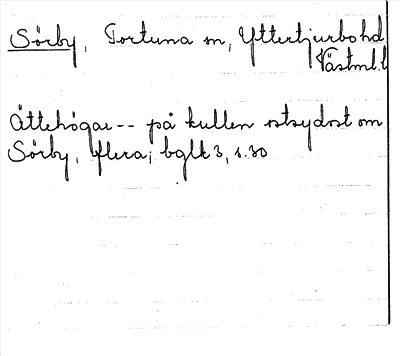 Sörby, Tortuna sn, Yttertjurbo hd
Västml. l
Ättehögar -- på kullen ostsydost om
Sörby, flera; bglt 3, s. 30